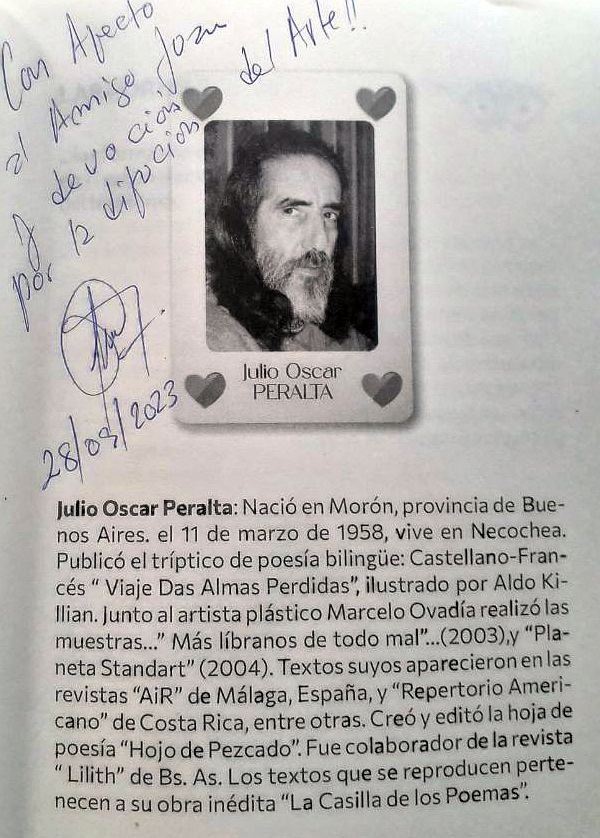 Con Afecto
al Amigo José
y devoción
por la difución del Arte!!
28/08/2023
Julio Oscar
PERALTA
Julio Oscar Peralta: Nació en Morón, provincia de Bue-
nos Aires. el 11 de marzo de 1958, vive en Necochea.
Publicó el tríptico de poesía bilingüe: Castellano-Fran-
cés “ Viaje Das Almas Perdidas”, ilustrado por Aldo Ki-
llian. Junto al artista plástico Marcelo Ovadía realizó las
muestras...” Más líbranos de todo mal”...(2003),y “Pla-
neta Standart” (2004). Textos suyos aparecieron en las
revistas “AiR” de Málaga, España, y “Repertorio Ameri-
cano” de Costa Rica, entre otras. Creó y editó la hoja de
poesía “Hojo de Pezcado”. Fue colaborador de la revista
“ Lilith” de Bs. As. Los textos que se reproducen perte-
necen a su obra inédita “La Casilla de los Poemas”.